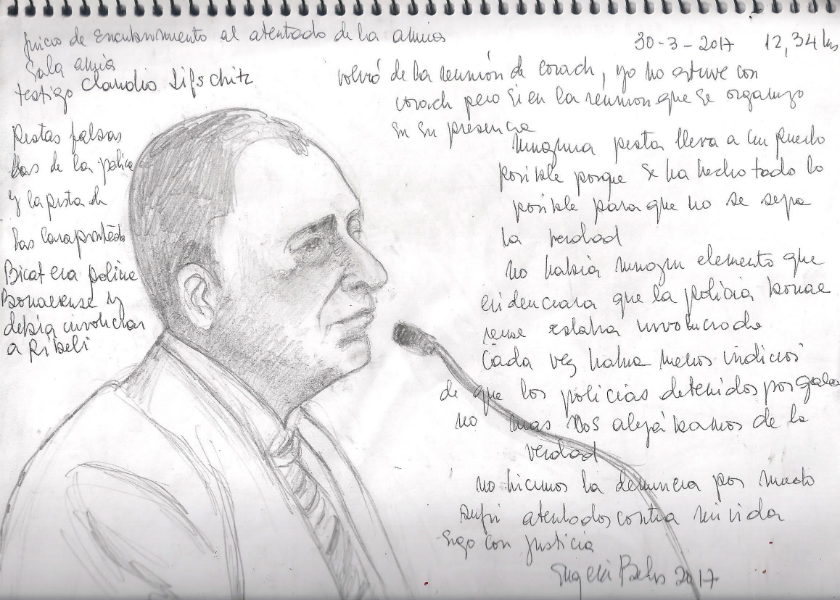 Juicio de Encubrimiento al atentado de la amia
Sala amia
testigo Claudio Lifschitz
30-3-2017 12,34 hs
volvió de la reunión de corach, yo no estuve con
corach pero si en la reunion que se organizo
en su presencia
Pistas falsas
las de la policia
y la pista de
las carapintada
Bicat era policia
Bonaerense y
debia involucrar
a Ribeli
ninguna pista lleva a un puerto
posible porque se ha hecho todo lo
posible para que no se sepa
la verdad
no habia ningun elemento que
evidenciara que la policia bonae
rense estaba involucrada
Cada vez habia menos indicios
de que los policias detenidos por
no mas nos alejábamos de la
verdad
no hicimos la denuncia por miedo
sufri atentados contra mi vida
sigo con justicia
2017